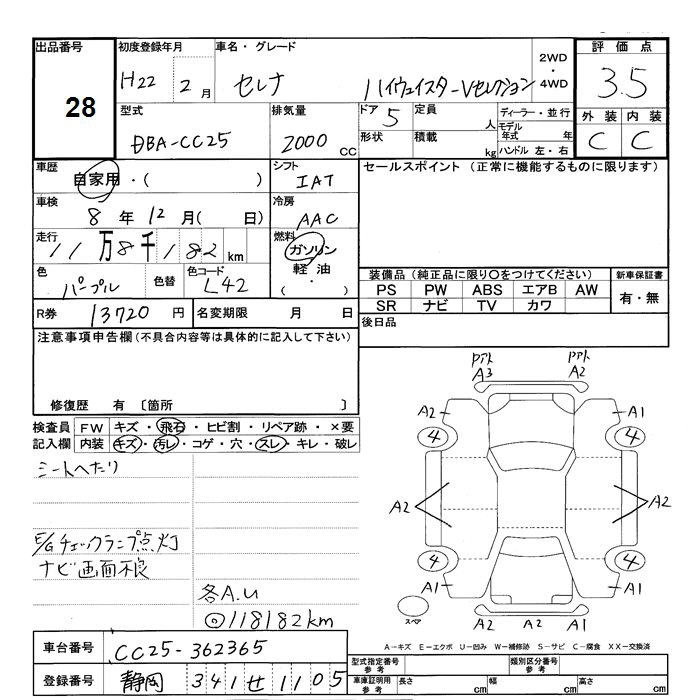 出品番号 28
初度登録年月 H22 年 2 月
車名・グレード セレナ ハイウェイスターVセレクション
2WD・4WD
評価点 3.5
型式 DBA-CC25
排気量 2000 CC
ドア 5 定員 人
形状 積載 kg
ディーラー・並行
モデル年式 年
ハンドル 左・右
外装 内装
C C
車歴 自家用・( )
シフト IAT
セールスポイント (正常に機能するものに限ります)
車検 8 年 12 月( 日)
冷房 AAC
走行 11万8千182 km
燃料 ガソリン・軽油・( )
色 パープル 色替 色コード L42
装備品 (純正品に限り○をつけてください) 新車保証書
PS PW ABS エアB AW 有・無
SR ナビ TV カワ
R券 13720 円 名変期限 月 日
後日品
注意事項申告欄(不具合内容等は具体的に記入して下さい)
修復歴 有 〔箇所 〕
検査員記入欄
FW キズ・飛石・ヒビ割・リペア跡・×要
内装 キズ・汚レ・コゲ・穴・スレ・キレ・破レ
シートへたり
E/Gチェックランプ点灯
ナビ画面不良
各A.U
◎118182km
アト アト
A3 A2
A2 A1
4 4
A2 A2
4 4
A1 A1
A2 A2
スペア
A-キズ E-エクボ U-凹み W-補修跡 S-サビ C-腐食 XX-交換済
車台番号 CC25-362365
登録番号 静岡 341 せ 1105
型式指定番号 参考 類別区分番号 参考
車庫証明用 参考 長さ cm 幅 cm 高さ cm